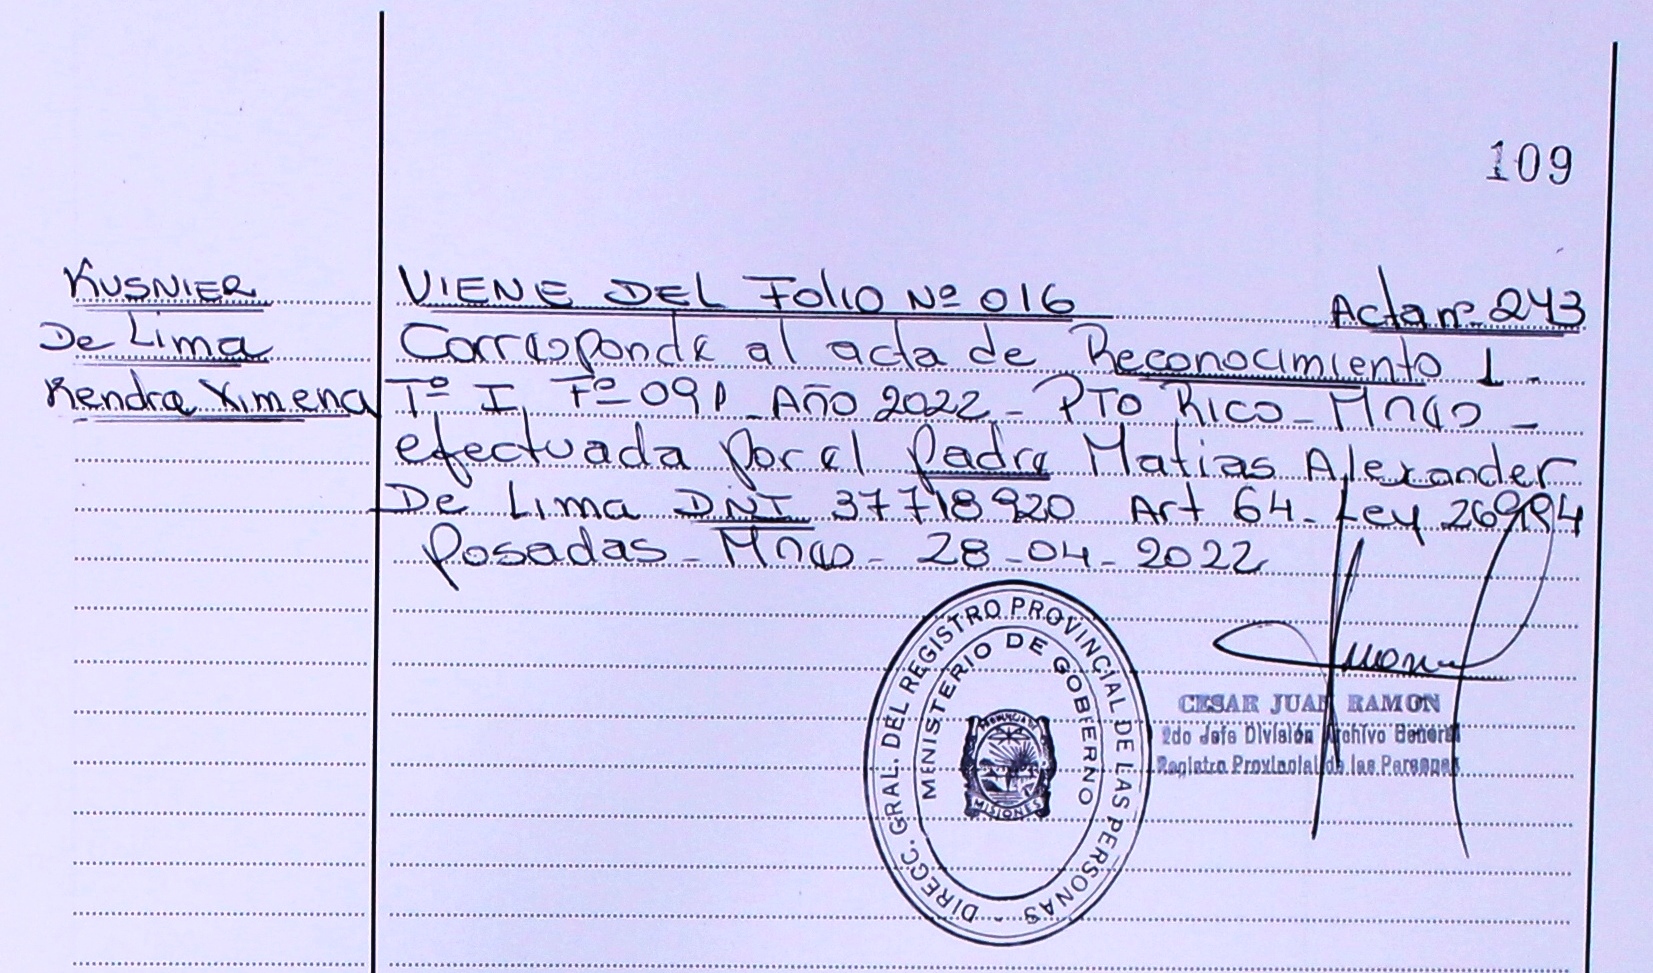 109
KUSNIER
De Lima
Kendra Ximena
VIENE DEL Folio Nº 016
Acta nº 243
Corresponde al acta de Reconocimiento 1 -
Tº I, Fº 091 - Año 2022 - PTO RICO - Mnes -
efectuada por el padre Matias Alexander
De Lima DNI 37718920 Art 64 - Ley 26994
Posadas - Mnes - 28-04-2022
DIRECC. GRAL. DEL REGISTRO PROVINCIAL DE LAS PERSONAS -
MENISTERIO DE GOBIERNO
PROVINCIA DE
MISIONES
CESAR JUAN RAMON
2do Jefe División Archivo General
Registro Provincial de las Personas